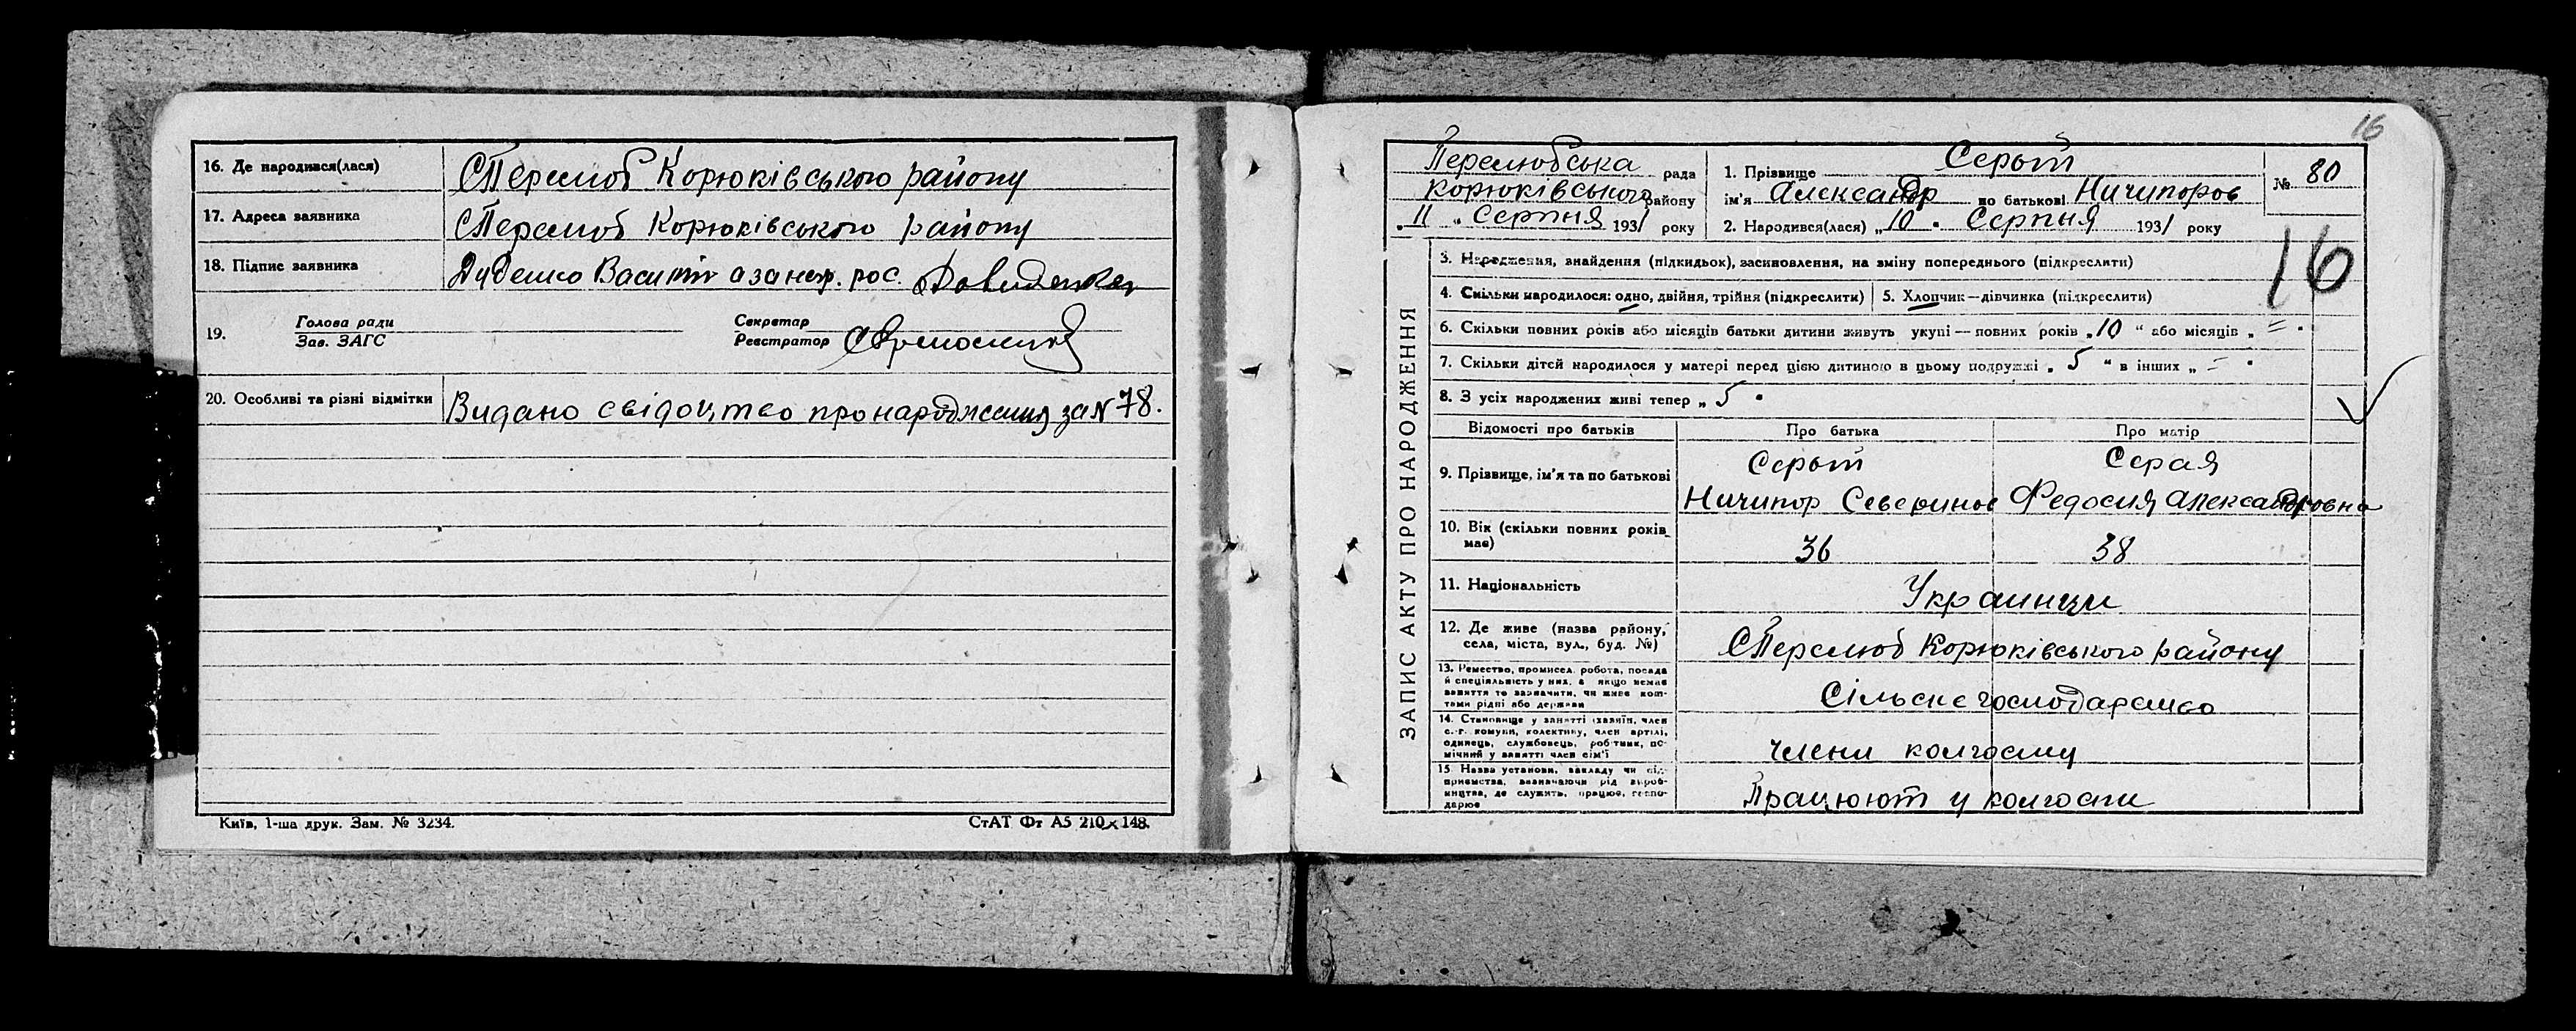 16. Де народився(лася)
С Перелюб Корюківського району
17. Адреса заявника
С Перелюб Корюківського району
18. Підпис заявника
Василь а за негр. рос.
19.
Голова ради
Зав. ЗАГС
Секретар
Реєстратор
20. Особливі та різні відмітки
Видано свідоцтво про народження за № 78.
Київ, 1-ша друк. Зам. № 3234.
СтАТ Фт А5 210×148.
16
ЗАПИС АКТУ ПРО НАРОДЖЕННЯ
Перелюбська рада
Корюківського району
„ 11 „ Серпня 1931 року
1. Прізвище Серый
ім'я Александр по батькові Ничипоров
2. Народився(лася) „ 10 „ Серпня 1931 року
№ 80
16
3. Народження, знайдення (підкидьок), засиновлення, на зміну попереднього (підкреслити)
4. Скільки народилося: одно, двійня, трійня (підкреслити)
5. Хлопчик—дівчинка (підкреслити)
6. Скільки повних років або місяців батьки дитини живуть укупі — повних років „ 10 “ або місяців „ = “
7. Скільки дітей народилося у матері перед цією дитиною в цьому подружжі „ 5 “ в інших „ = “
8. З усіх народжених живі тепер „ 5 “
Відомості про батьків
Про батька
Про матір
9. Прізвище, ім'я та по батькові
Серый
Ничипор Северинов
Серая
Федосия Александровна
10. Вік (скільки повних років має)
36
38
11. Національність
Украинци
12. Де живе (назва району,
села, міста, вул., буд. №)
С Перелюб Корюківського району
13. Ремество, промисел, робота, посада
й спеціяльність у них, а якщо немає
заняття то зазначити, чи живе кош-
тами рідні або держави
Сільське господарство
14. Становище у занятті (хазяїн, член
с.-г. комуни, колективу, член артілі,
одинець, службовець, робітник, по-
мічний у занятті член сім'ї
члени колгоспу
15. Назва установи, закладу чи під-
приємства, визначаючи рід вироб-
ництва, де служить, працює, госпо-
дарює
Працюют у колгоспи